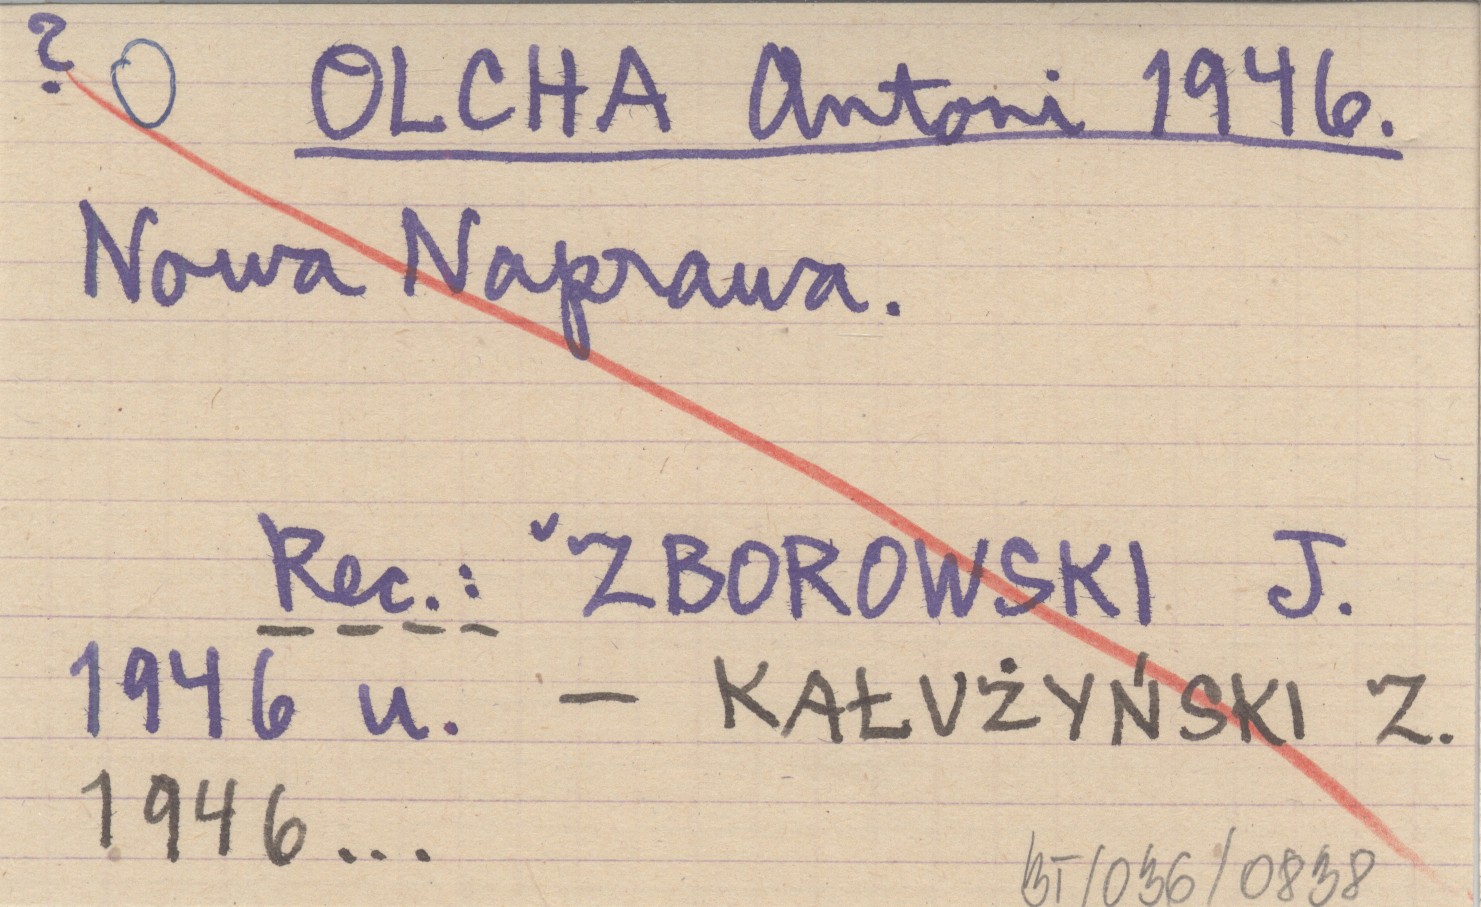 ? O OLCHA Antoni 1946.
Nowa Naprawa.
Rec.: ˇZBOROWSKI J.
1946 u. — KAŁUŻYŃSKI Z.
1946...
BT/036/0838